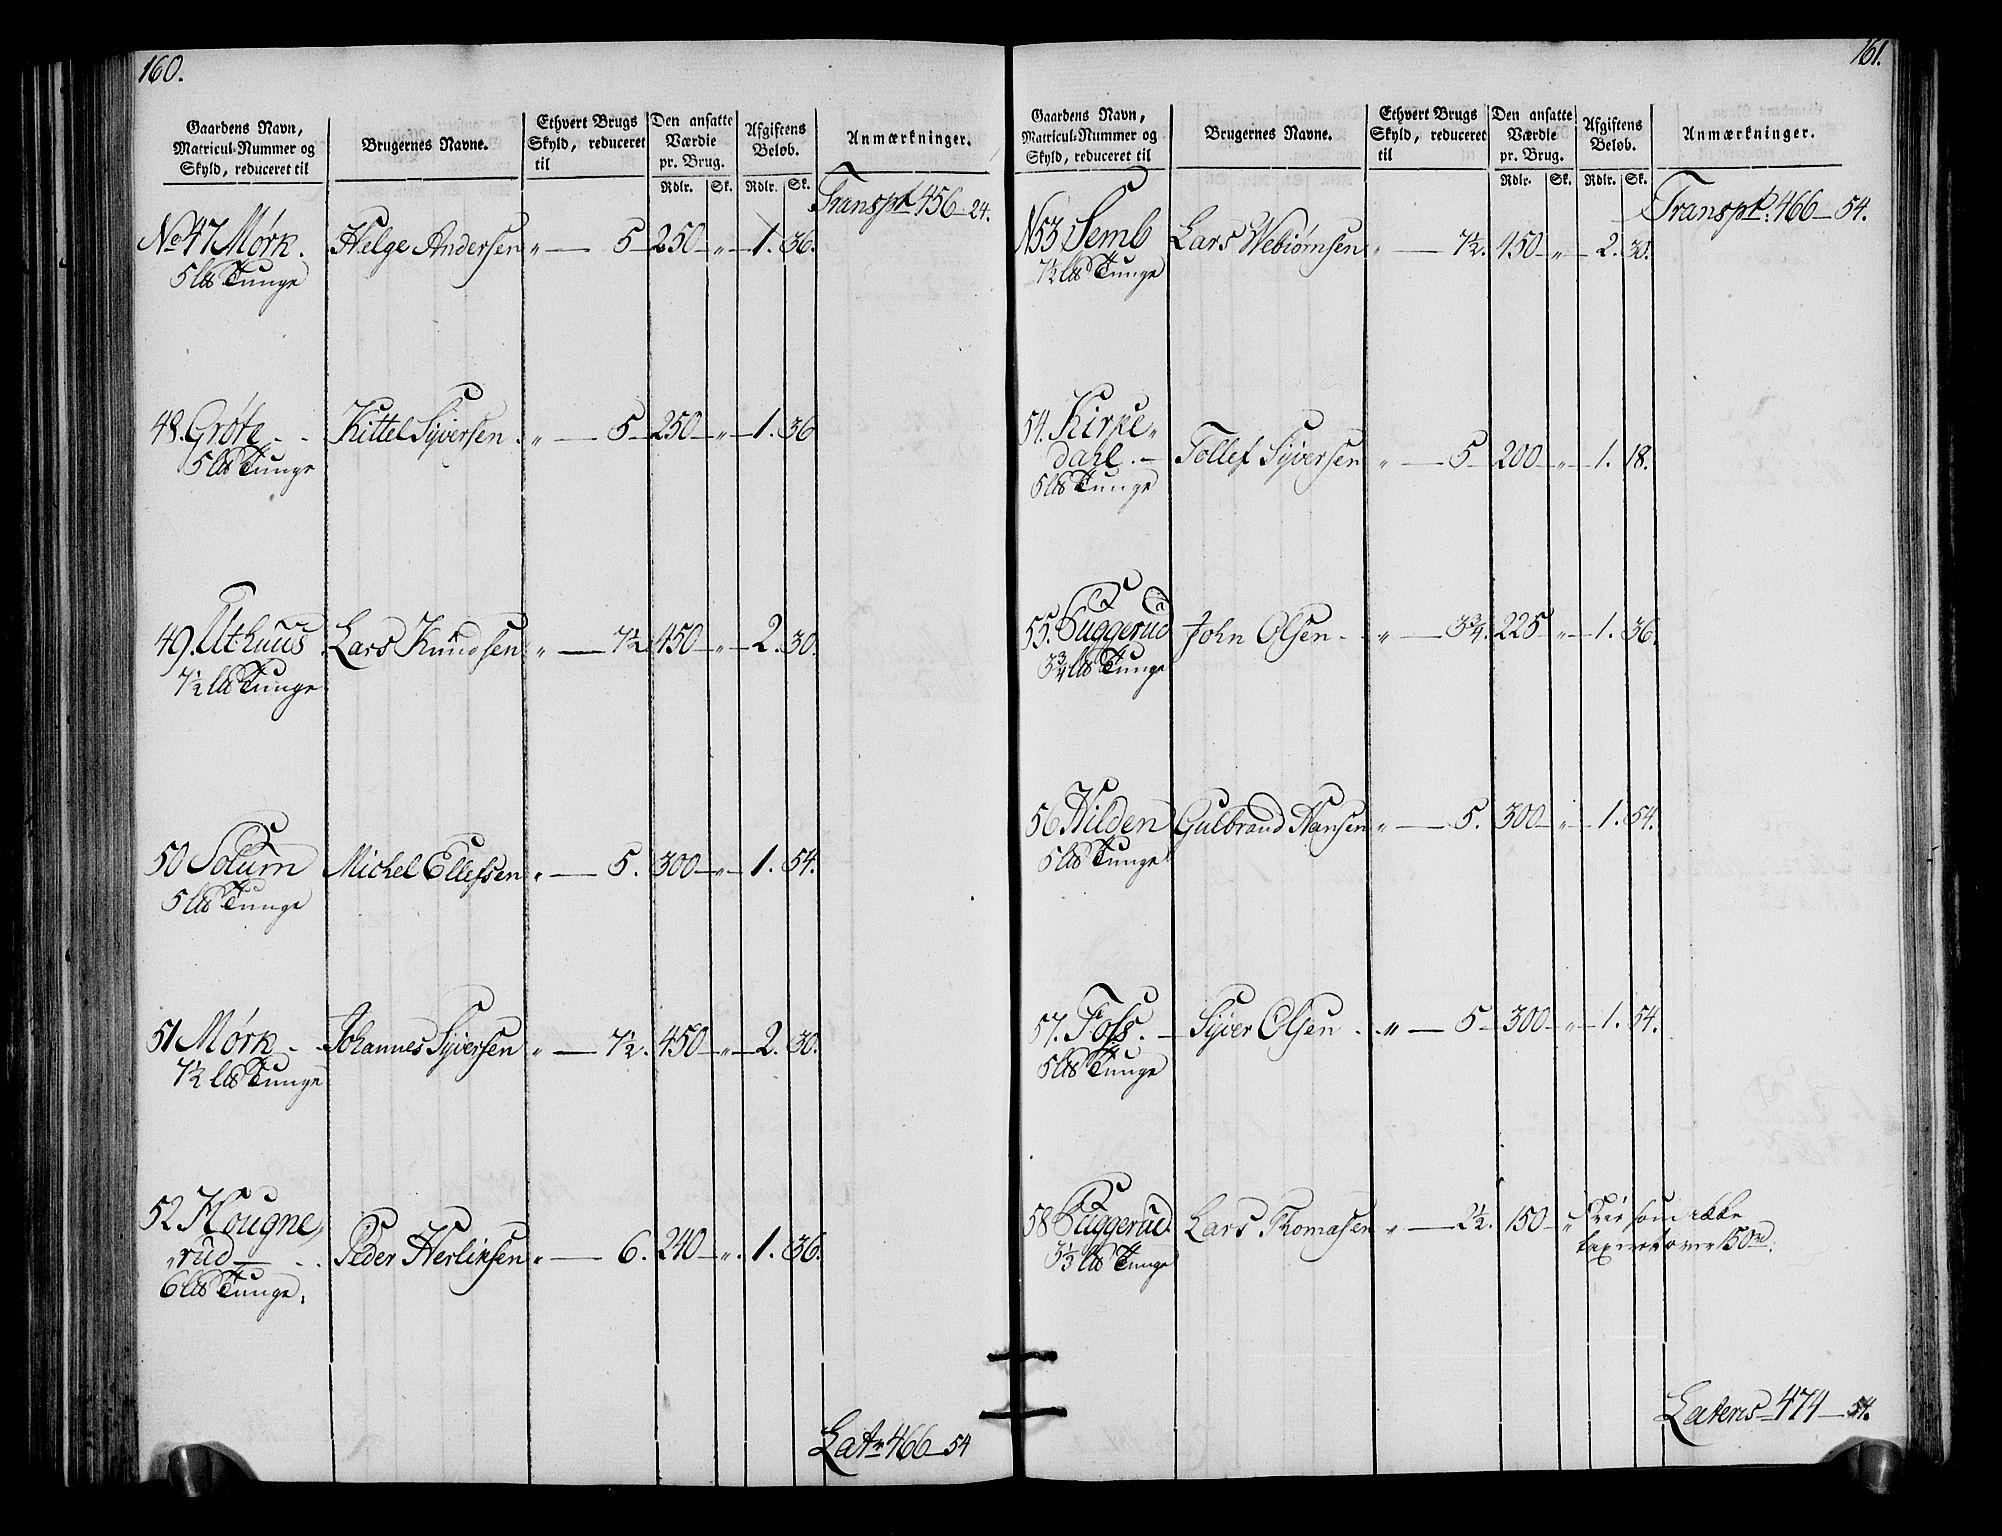 160.
Gaardens Navn, Matricul-Nummer og Skyld, reduceret til
Brugernes Navne.
Ethvert Brugs Skyld, reduceret til
Den ansatte Værdie pr. Brug.
Afgiftens Beløb.
Anmærkninger.
Rdlr. Sk. Rdlr. Sk.
Transpt 456 - 24.
No 47 Mørk. Helge Andersen " - 5 - 250 - " - 1. 36.
5 lb Tunge
48. Grøte - - Kittel Syversen " - 5 - 250 - " - 1. 36
5 lb Tunge
49. Uthuus Lars Knudsen " - 7½ 450 - " - 2. 30.
7½ lb Tunge
50 Solum Michel Ellefsen " - 5. 300 - " - 1. 54.
5 lb Tunge
51 Mørk - - Johannes Syversen " - 7½. 450 - " - 2. 30.
7½ lb Tunge
52 Hougne„
„rud - - Peder Herliksen " - 6. 240 - ". 1. 36.
6 lb Tunge.
Latr 466 - 54
161.
Gaardens Navn, Matricul-Nummer og Skyld, reduceret til
Brugernes Navne.
Ethvert Brugs Skyld, reduceret til
Den ansatte Værdie pr. Brug.
Afgiftens Beløb.
Anmærkninger.
Rdlr. Sk. Rdlr. Sk.
Transpt. 466 - 54.
N 53 Semb Lars Webiørnsen " - 7½. 450 - " - 2. 30.
7½ lb Tunge
54. Kirke„
dahl. - Tollef Syversen " - 5 - 200 - " - 1. 18.
5 lb Tunge
55. Tuggerud John Olsen - " - 3¾. 225 - " - 1. 36.
3¾ lb Tunge
56 Hilden Gulbrand Hansen " - 5. 300 - " - 1. 54.
5 lb Tunge
57. Foss. - Syver Olsen . " - 5 - 300 - " - 1. 54.
5 lb Tunge
58 Tuggerud. Lars Thomasen " - 2½. 150 - " frie som ikke
5⅓ lb Tunge taxeret over 150 rd.
Lateris 474 - 54.